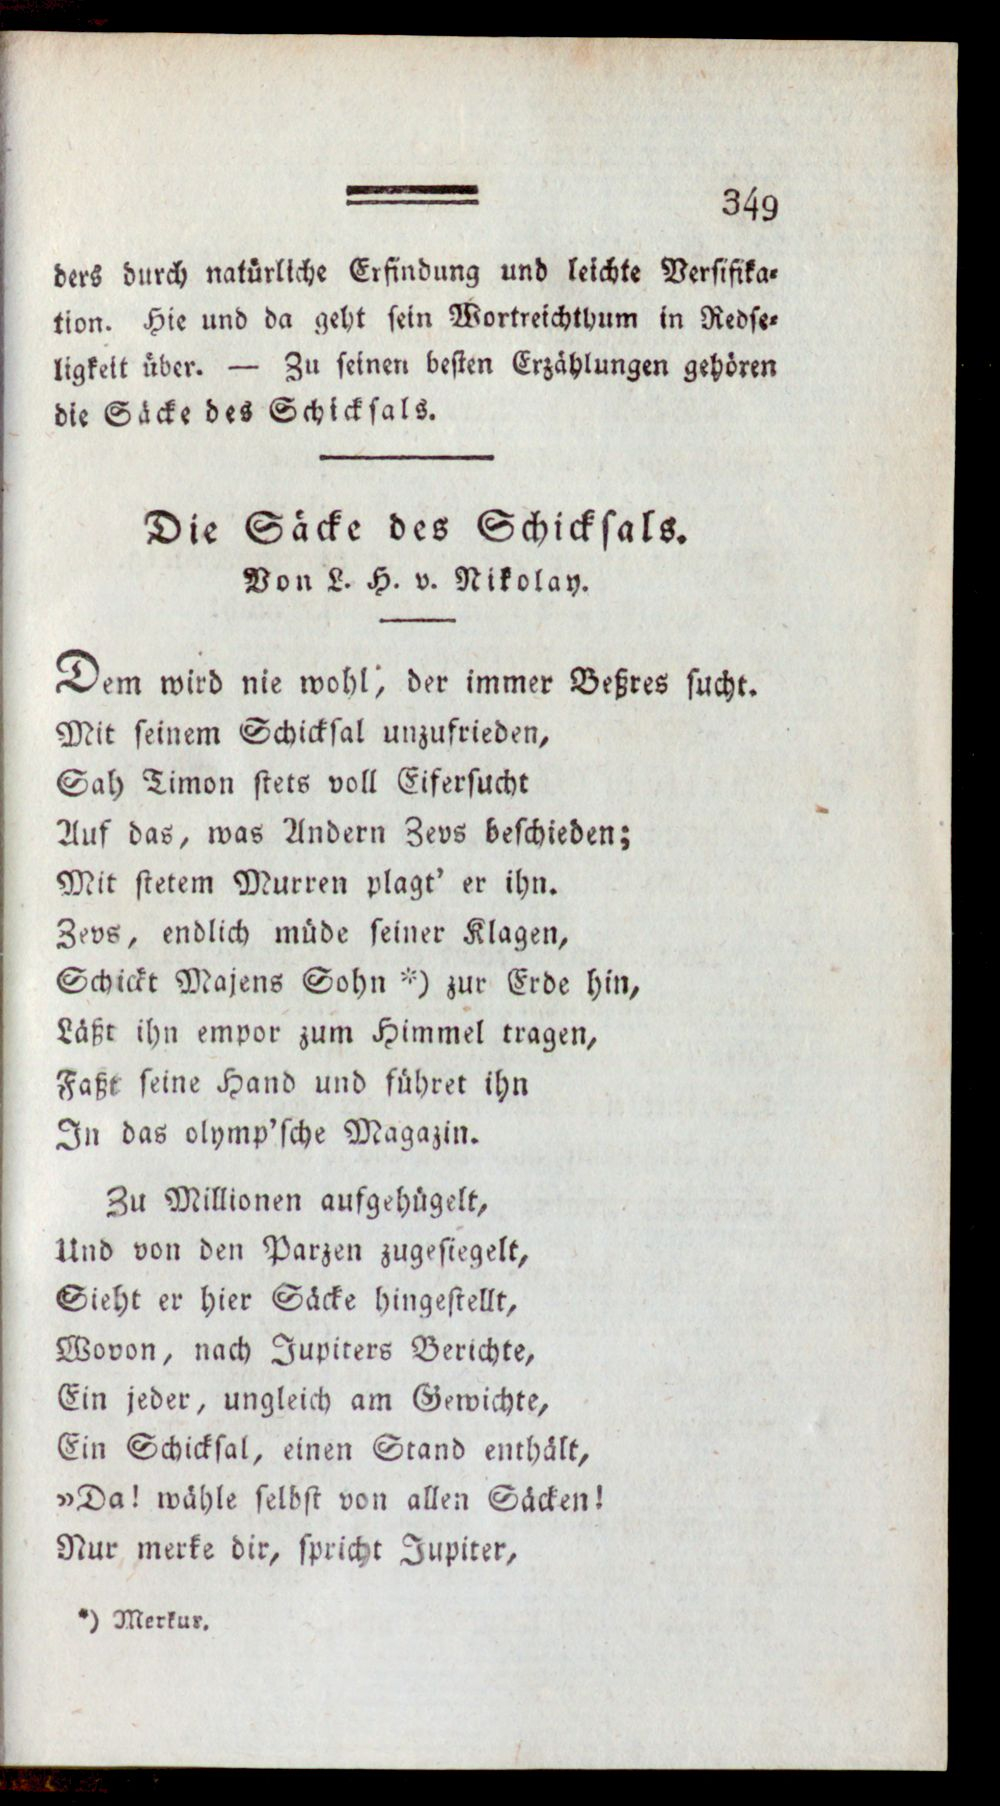 349
ders durch natürliche Erfindung und leichte Versifika-
tion. Hie und da geht sein Wortreichthum in Redse-
ligkeit über. — Zu seinen besten Erzählungen gehören
die Säcke des Schicksals.
Die Säcke des Schicksals.
Von L. H. v. Nikolay.
Dem wird nie wohl, der immer Beßres sucht.
Mit seinem Schicksal unzufrieden,
Sah Timon stets voll Eifersucht
Auf das, was Andern Zevs beschieden;
Mit stetem Murren plagt' er ihn.
Zevs, endlich müde seiner Klagen,
Schickt Majens Sohn *) zur Erde hin,
Läßt ihn empor zum Himmel tragen,
Faßt seine Hand und führet ihn
In das olymp'sche Magazin.
Zu Millionen aufgehügelt,
Und von den Parzen zugesiegelt,
Sieht er hier Säcke hingestellt,
Wovon, nach Jupiters Berichte,
Ein jeder, ungleich am Gewichte,
Ein Schicksal, einen Stand enthält,
»Da! wähle selbst von allen Säcken!
Nur merke dir, spricht Jupiter,
*) Merkur.